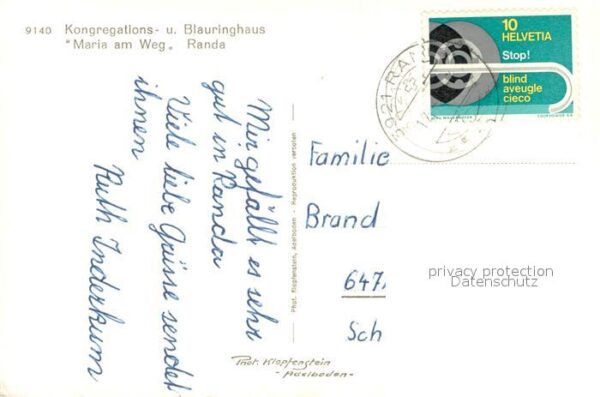 9140 Kongregations- u. Blauringhaus
"Maria am Weg„ Randa
10
HELVETIA
Stop!
blind
aveugle
cieco
COURVOISIER S.A.
3921 RANDA
Mir gefällt es sehr
gut in Randa
Viele liebe Grüsse sendet
ihnen
Ruth Inderkum
Phot. Klopfenstein, Adelboden - Reproduktion verboten
Familie
Brand
647
Sch
privacy protection
Datenschutz
Phot. Klopfenstein
- Adelboden -